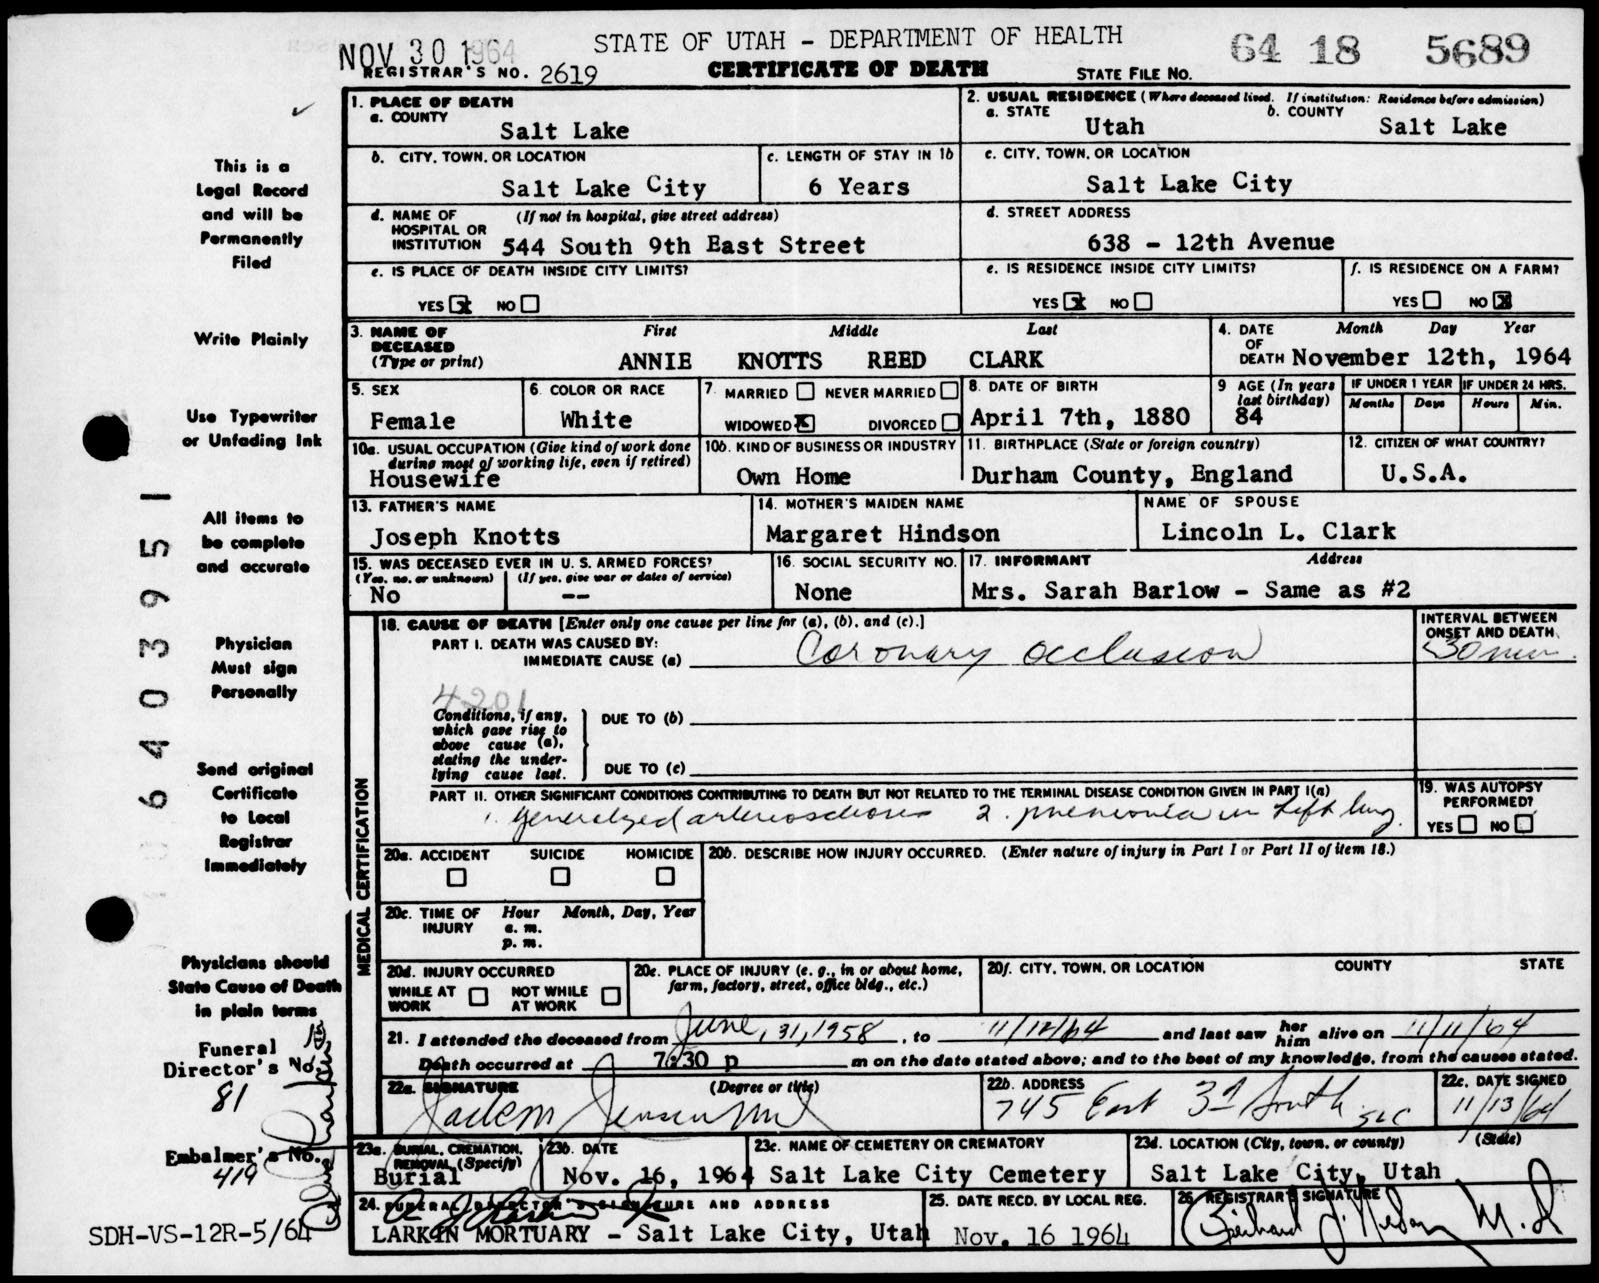 NOV 30 1964
STATE OF UTAH - DEPARTMENT OF HEALTH
64 18 5689
REGISTRAR'S NO. 2619
CERTIFICATE OF DEATH
STATE FILE NO.
This is a
Legal Record
and will be
Permanently
Filed
Write Plainly
Use Typewriter
or Unfading Ink
All items to
be complete
and accurate
Physician
Must sign
Personally
Send original
Certificate
to Local
Registrar
Immediately
Physicians should
State Cause of Death
in plain terms
Funeral
Director's No.
81
Embalmer's No.
419
SDH-VS-12R-5/64
6403951
1. PLACE OF DEATH
a. COUNTY
Salt Lake
2. USUAL RESIDENCE (Where deceased lived. If institution: Residence before admission)
a. STATE b. COUNTY
Utah Salt Lake
b. CITY, TOWN, OR LOCATION
Salt Lake City
c. LENGTH OF STAY IN 1b
6 Years
c. CITY, TOWN, OR LOCATION
Salt Lake City
d. NAME OF (If not in hospital, give street address)
HOSPITAL OR
INSTITUTION 544 South 9th East Street
d. STREET ADDRESS
638 - 12th Avenue
e. IS PLACE OF DEATH INSIDE CITY LIMITS?
YES X NO
e. IS RESIDENCE INSIDE CITY LIMITS?
YES X NO
f. IS RESIDENCE ON A FARM?
YES NO X
3. NAME OF First Middle Last
DECEASED
(Type or print) ANNIE KNOTTS REED CLARK
4. DATE Month Day Year
OF
DEATH November 12th, 1964
5. SEX
Female
6. COLOR OR RACE
White
7. MARRIED NEVER MARRIED
WIDOWED X DIVORCED
8. DATE OF BIRTH
April 7th, 1880
9 AGE (In years
last birthday)
84
IF UNDER 1 YEAR
Months Days
IF UNDER 24 HRS.
Hours Min.
10a. USUAL OCCUPATION (Give kind of work done
during most of working life, even if retired)
Housewife
10b. KIND OF BUSINESS OR INDUSTRY
Own Home
11. BIRTHPLACE (State or foreign country)
Durham County, England
12. CITIZEN OF WHAT COUNTRY?
U.S.A.
13. FATHER'S NAME
Joseph Knotts
14. MOTHER'S MAIDEN NAME
Margaret Hindson
NAME OF SPOUSE
Lincoln L. Clark
15. WAS DECEASED EVER IN U. S. ARMED FORCES?
(Yes, no, or unknown) (If yes, give war or dates of service)
No --
16. SOCIAL SECURITY NO.
None
17. INFORMANT Address
Mrs. Sarah Barlow - Same as #2
MEDICAL CERTIFICATION
18. CAUSE OF DEATH [Enter only one cause per line for (a), (b), and (c).]
INTERVAL BETWEEN
ONSET AND DEATH
PART I. DEATH WAS CAUSED BY:
IMMEDIATE CAUSE (a) Coronary occlusion 30 min.
4201
Conditions, if any,
which gave rise to
above cause (a),
stating the under-
lying cause last.
DUE TO (b)
DUE TO (c)
PART II. OTHER SIGNIFICANT CONDITIONS CONTRIBUTING TO DEATH BUT NOT RELATED TO THE TERMINAL DISEASE CONDITION GIVEN IN PART I(a)
1. Generalized arteriosclerosis 2. pneumonia in left lung.
19. WAS AUTOPSY
PERFORMED?
YES NO
20a. ACCIDENT SUICIDE HOMICIDE
20b. DESCRIBE HOW INJURY OCCURRED. (Enter nature of injury in Part I or Part II of item 18.)
20c. TIME OF Hour Month, Day, Year
INJURY a. m.
p. m.
20d. INJURY OCCURRED
WHILE AT NOT WHILE
WORK AT WORK
20e. PLACE OF INJURY (e. g., in or about home,
farm, factory, street, office bldg., etc.)
20f. CITY, TOWN, OR LOCATION COUNTY STATE
21. I attended the deceased from June, 31, 1958, to 11/12/64 and last saw her him alive on 11/11/64
Death occurred at 7:30 p m on the date stated above; and to the best of my knowledge, from the causes stated.
22a. SIGNATURE (Degree or title)
Jensen MD
22b. ADDRESS
745 East 3rd South SLC
22c. DATE SIGNED
11/13/64
23a. BURIAL, CREMATION,
REMOVAL (Specify)
Burial
23b. DATE
Nov. 16, 1964
23c. NAME OF CEMETERY OR CREMATORY
Salt Lake City Cemetery
23d. LOCATION (City, town, or county) (State)
Salt Lake City, Utah
24. FUNERAL DIRECTOR'S SIGNATURE AND ADDRESS
LARKIN MORTUARY - Salt Lake City, Utah
25. DATE RECD. BY LOCAL REG.
Nov. 16 1964
26 REGISTRAR'S SIGNATURE
M.D